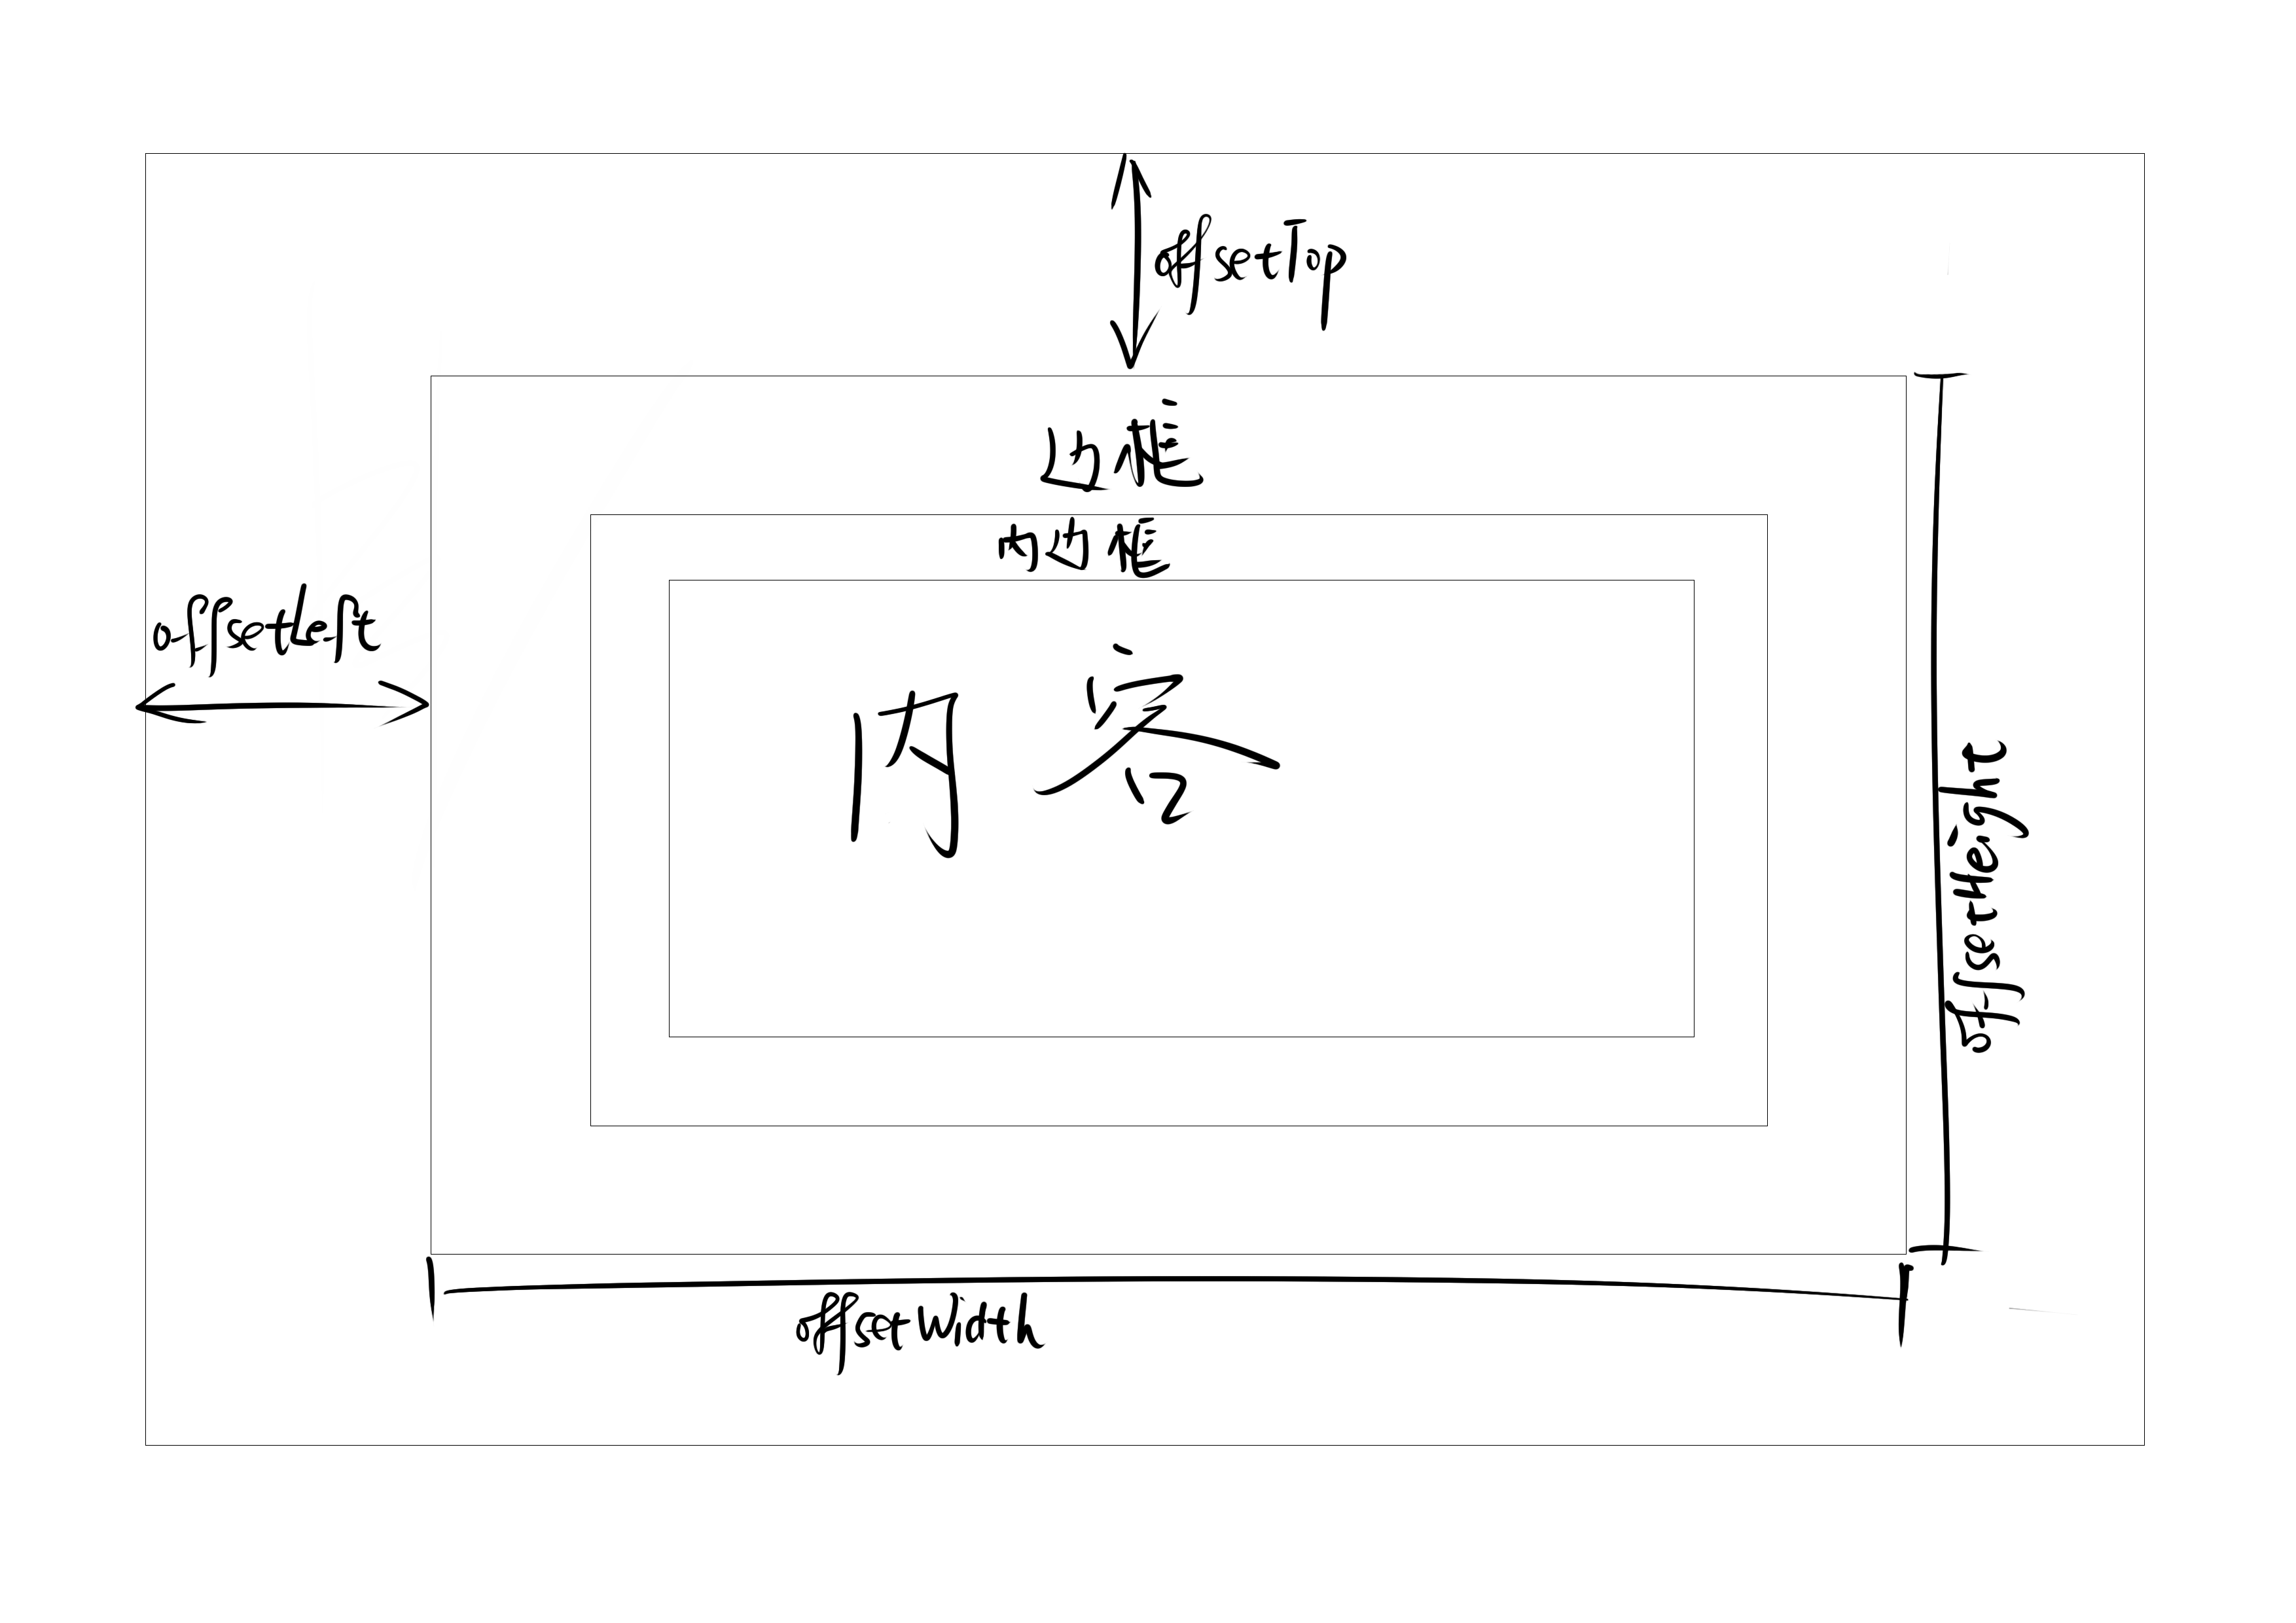 offsetTop
边框
内边框
offsetLeft
内容
offsetHeight
offsetWidth